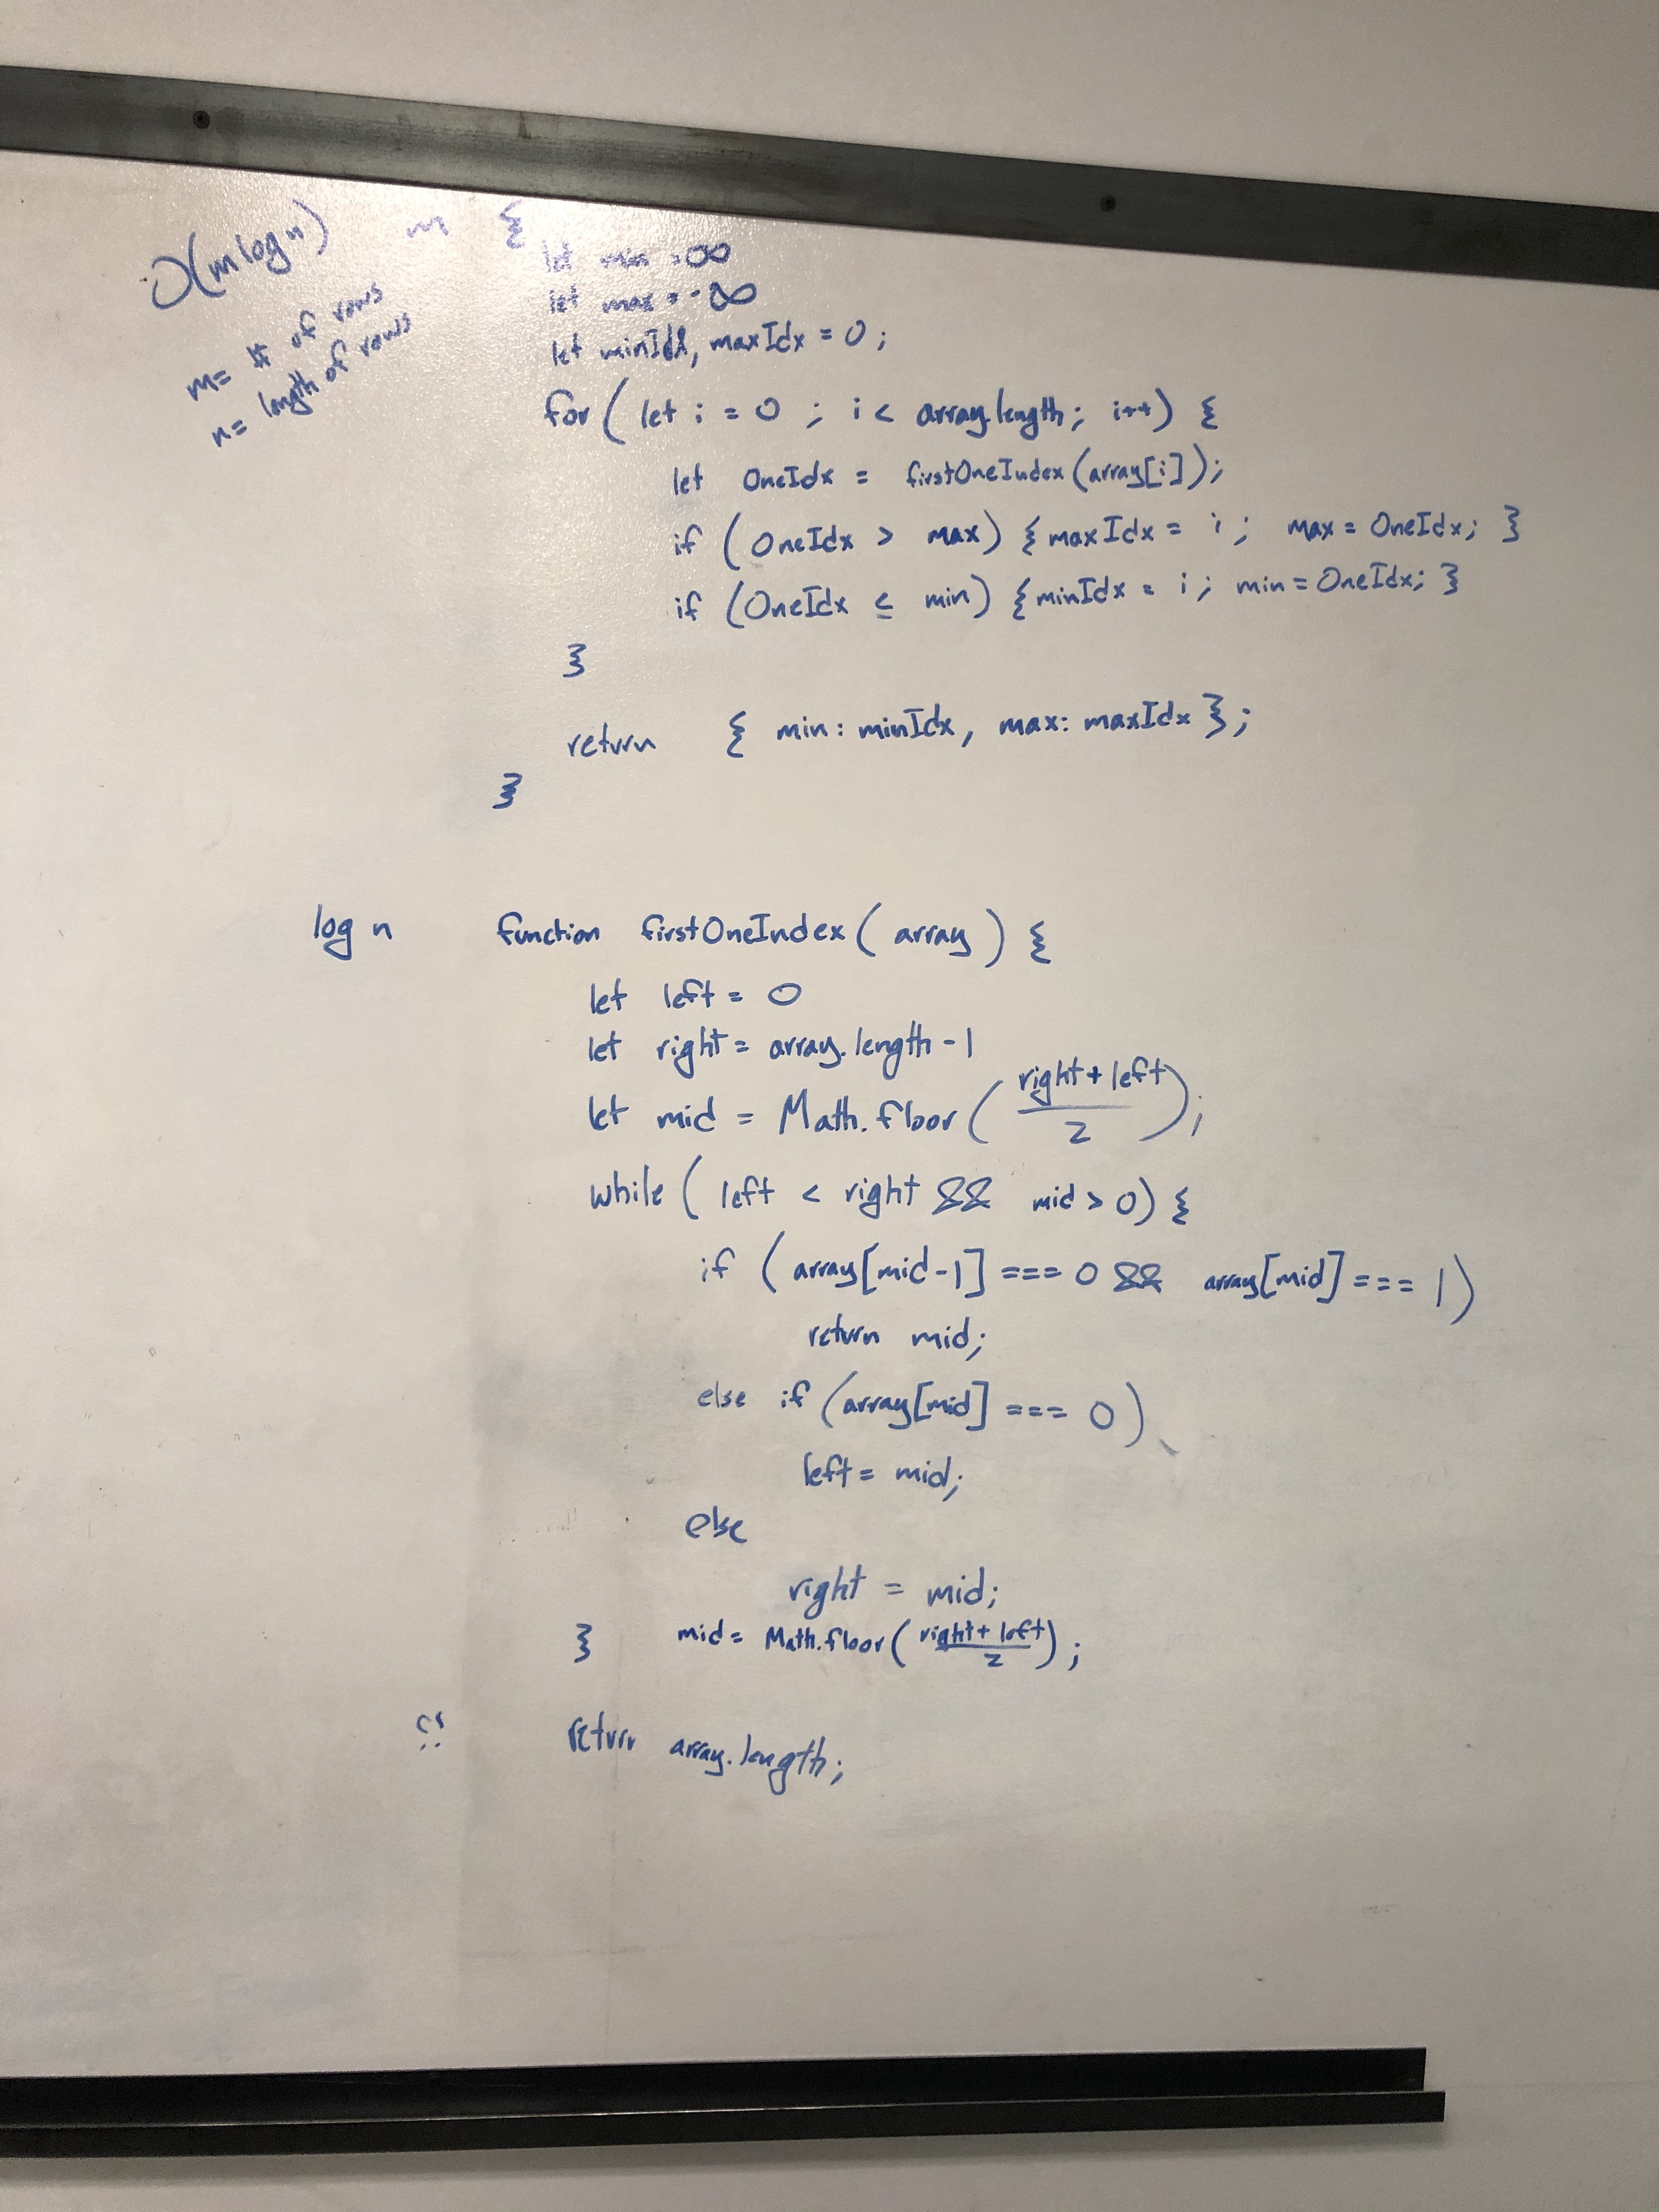 O(m log n)
m = # of rows
n = length of rows
m {
let min = ∞
let max = -∞
let minIdx, maxIdx = 0;
for ( let i = 0 ; i < array.length; i++) {
let OneIdx = firstOneIndex(array[i]);
if ( OneIdx > max) { maxIdx = i ; max = OneIdx; }
if (OneIdx ≤ min) { minIdx = i ; min = OneIdx; }
}
return { min: minIdx, max: maxIdx };
}
log n function firstOneIndex( array ) {
let left = 0
let right = array.length - 1
let mid = Math.floor( (right + left)/2 );
while ( left < right && mid > 0) {
if ( array[mid-1] === 0 && array[mid] === 1)
return mid;
else if (array[mid] === 0)
left = mid;
else
right = mid;
} mid = Math.floor( (right + left)/2 );
return array.length;